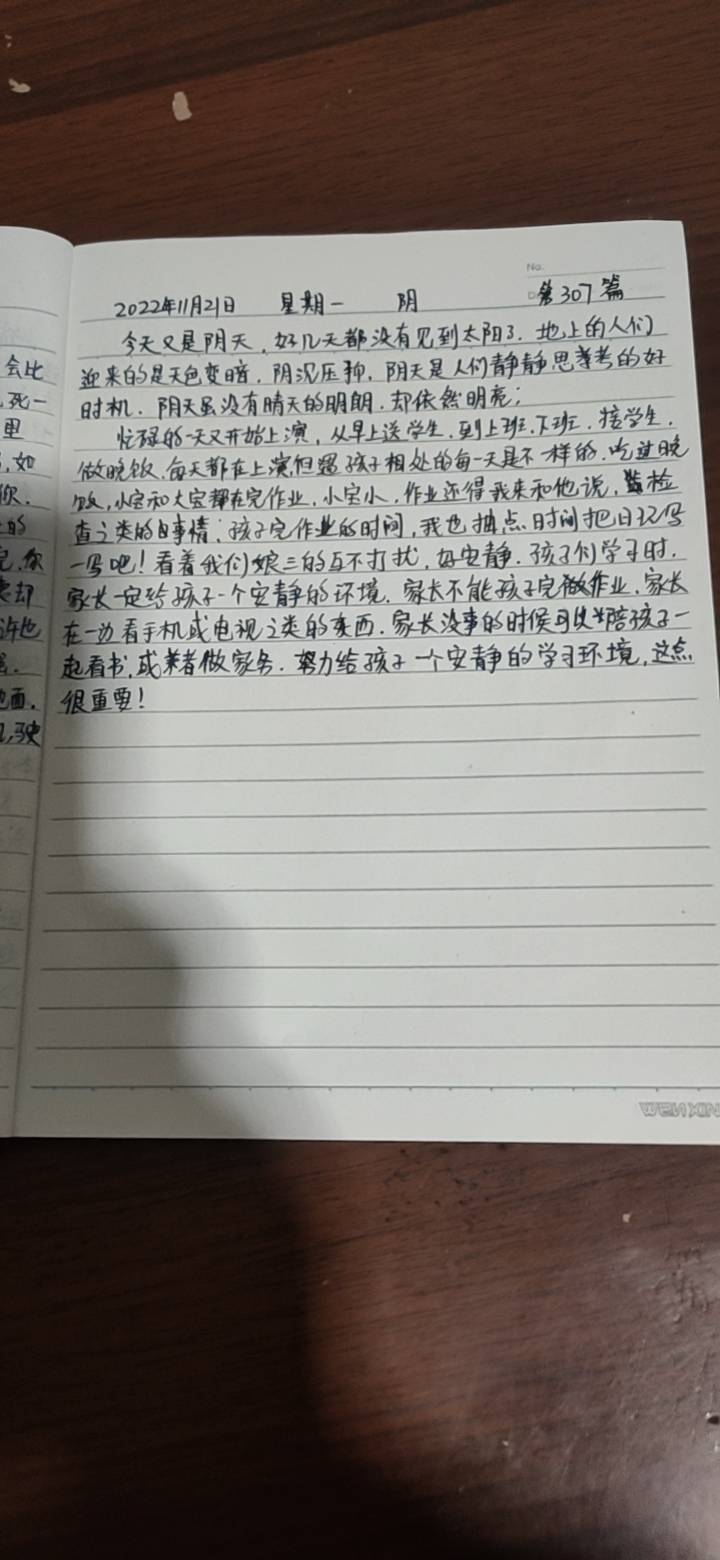 No.
2022年11月21日 星期一 阴 第307篇
今天又是阴天,好几天都没有见到太阳了.地上的人们
迎来的是天色变暗.阴沉压抑.阴天是人们静静思考的好
时机.阴天虽没有晴天的明朗.却依然明亮;
忙碌的一天又开始上演,从早上送学生.到上班.下班.接学生.
做晚饭.每天都在上演,但跟孩子相处的每一天是不一样的.吃过晚
饭,小宝和大宝都在完作业,小宝小,作业还得我来和他说,检
查之类的事情;孩子完作业的时间,我也抽点时间把日记写
一写吧!看着我们娘三的互不打扰,好安静.孩子们学习时.
家长一定给孩子一个安静的环境.家长不能孩子完做作业.家长
在一边看手机或电视之类的东西.家长没事的时候可以陪孩子一
起看书,或者做家务.努力给孩子一个安静的学习环境,这点
很重要!
会比
死一
里
,如
你.
的
完.你
却
许也
面.
驶